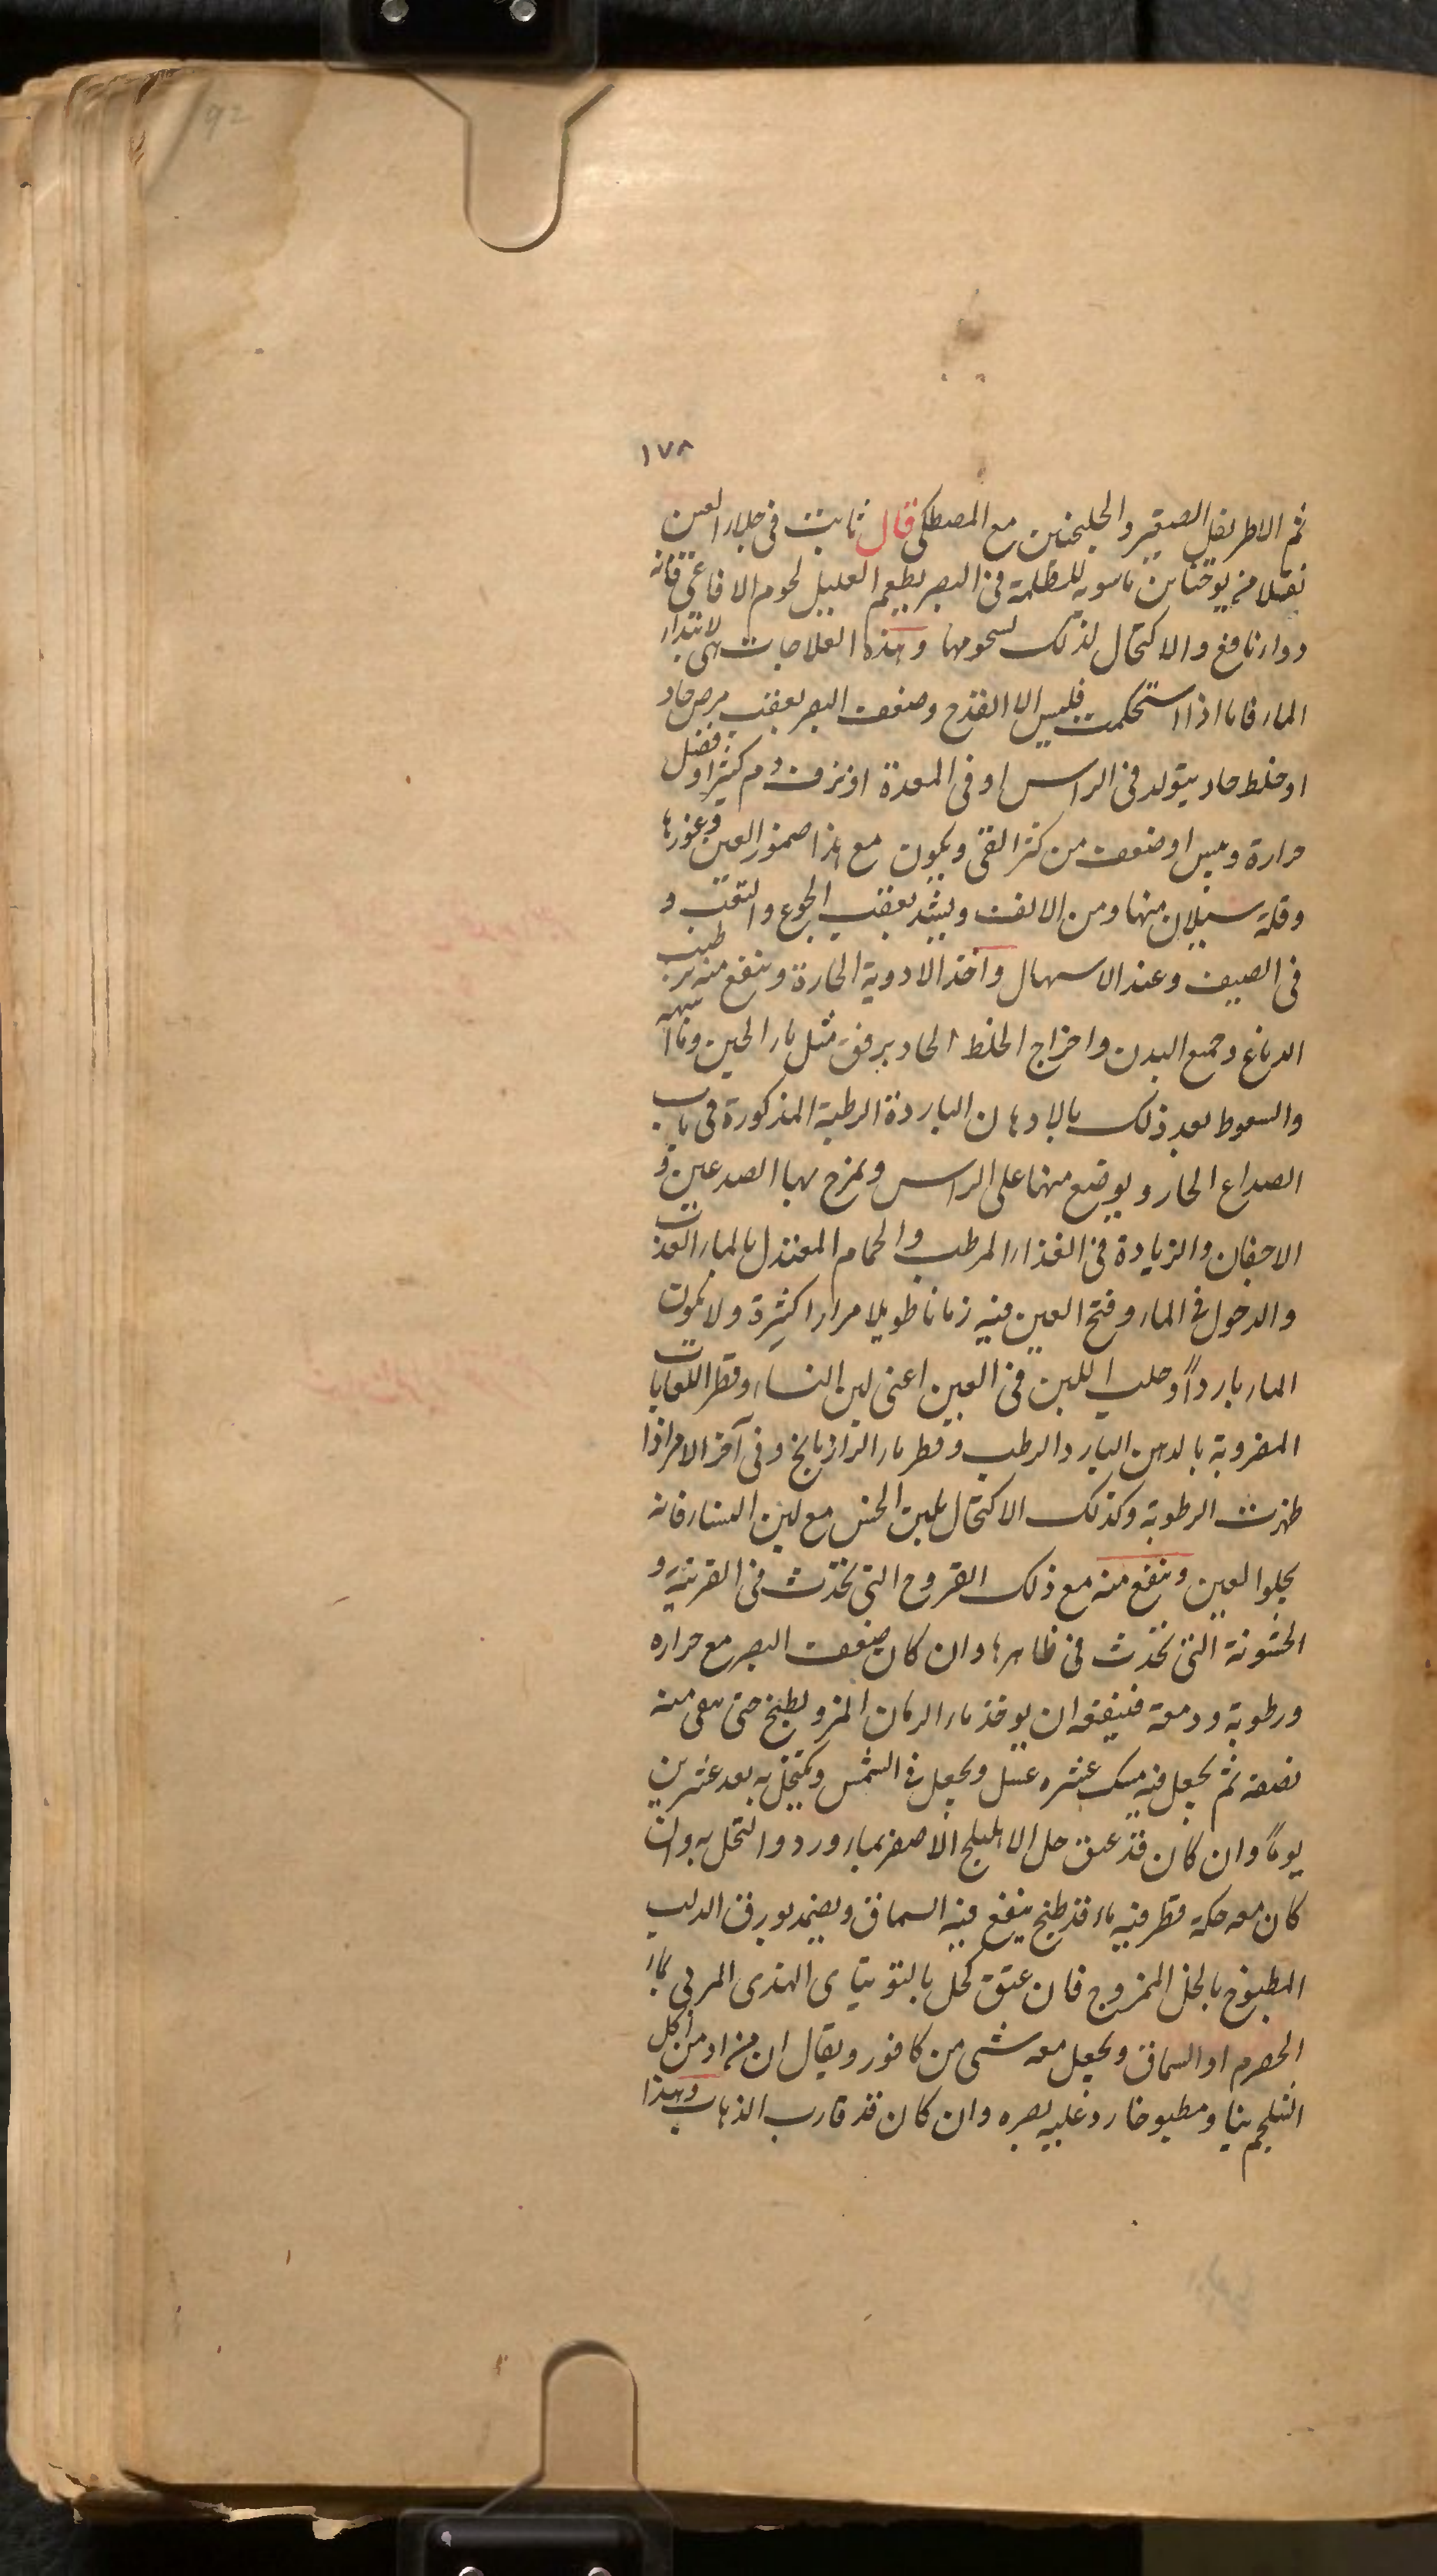 92
١٧٨
ثم الاطريفل الصغير والجلنجبين مع المصطكى قال ثابت فى جلاء العين
نقلا من يوحنا بن ماسويه للظلمة فى البصر يطعم العليل لحوم الافاعى فانه
دواء نافع والاكتحال لذلك لشحومها وهذه العلاجات هى لابتداء
الماء فاما اذا استحكمت فليس الا القدح وضعف البصر بعقب مرض حاد
او خلط حاد يتولد فى الراس او فى المعدة او نزف دم كثير او فضل
حرارة ويبس او ضعف من كثر القى ويكون مع هذا ضمور العين وغورها
وقلة سيلان منها ومن الانف ويشد بعقب الجوع والتعب و
فى الصيف وعند الاسهال واخذ الادوية الحارة وينفع منه ترطيب
الدماغ وجميع البدن واخراج الخلط الحاد برفق مثل ماء الجبن وما اشبهه
والسعوط بعد ذلك بالادهان الباردة الرطبة المذكورة فى باب
الصداع الحار ويوضع منها على الراس ويمزح بها الصدعين و
الاجفان والزيادة فى الغذاء المرطب والحمام المعتدل بالماء العذب
والدخول فى الماء وفتح العين فيه زمانا طويلا مرارا كثيرة ولا يكون
الماء باردا وحلب اللبن فى العين اعنى لبن النساء وقطر اللعابات
المضروبة بالدهن البارد الرطب وقطر ماء الرازيانج وفى آخر الامر اذا
ظهرت الرطوبة وكذلك الاكتحال بلبن الخس مع لبن النساء فانه
يجلوا العين وينفع منه مع ذلك القروح التى تحدث فى القرنية و
الخشونة التى تحدث فى ظاهرها وان كان ضعف البصر مع حراره
ورطوبة ودمعة فينفعه ان يوخذ ماء الرمان المز ويطبخ حتى يبقى منه
نصفه ثم يجعل فيه عشره عسل ويجعل فى الشمس ويكتحل به بعد عشرين
يوماً وان كان قد عتق حل الاهليلج الاصفر بماء ورد واكتحل به وان
كان معه حكة قطر فيه ماء قد طبخ ينقع فيه السماق ويضمد بورق الدلب
المطبوخ بالخل الممزوج فان عتق كحل بالتوتياى الهندى المربى بماء
الحصرم او السماق ويجعل معه شى من كافور ويقال ان من ادمن اكل
الشلجم نيا ومطبوخا رد عليه بصره وان كان قد قارب الذهاب وهذا